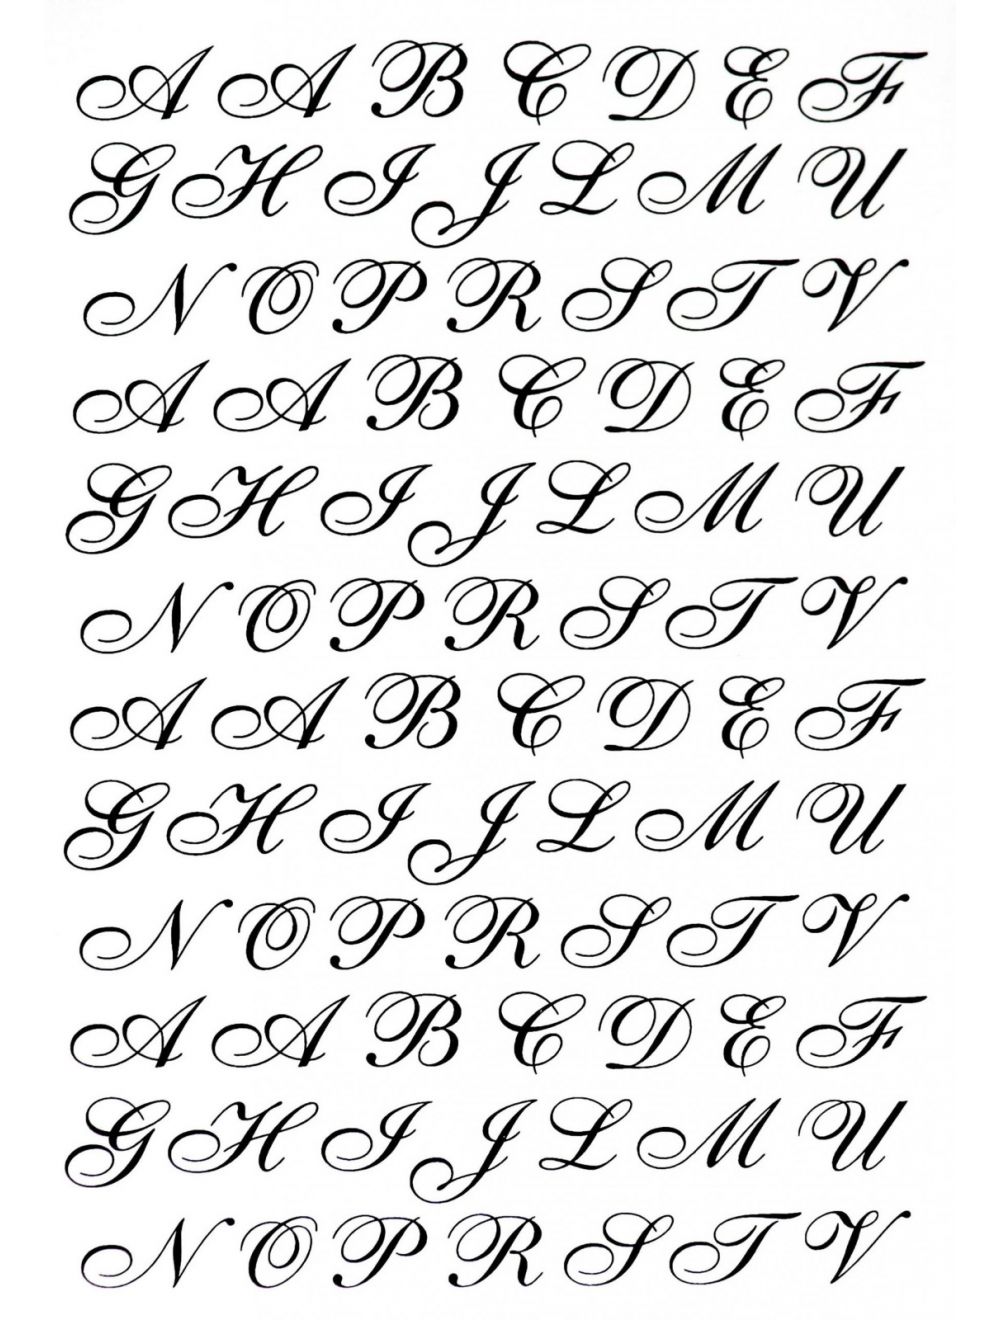 A A B C D E F
G H I J L M U
N O P R S T V
A A B C D E F
G H I J L M U
N O P R S T V
A A B C D E F
G H I J L M U
N O P R S T V
A A B C D E F
G H I J L M U
N O P R S T V